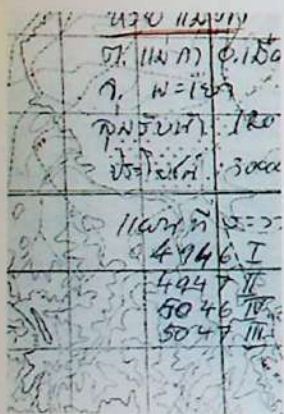 ห้วย แม
ต. แม กา อ. เมือ
จ. พะเยา
ลุ่มรับน้ำ 120
ประโยชน์ 3000
แผนที่ ระวา
4946 I
4947 II
5046 IV
5047 III